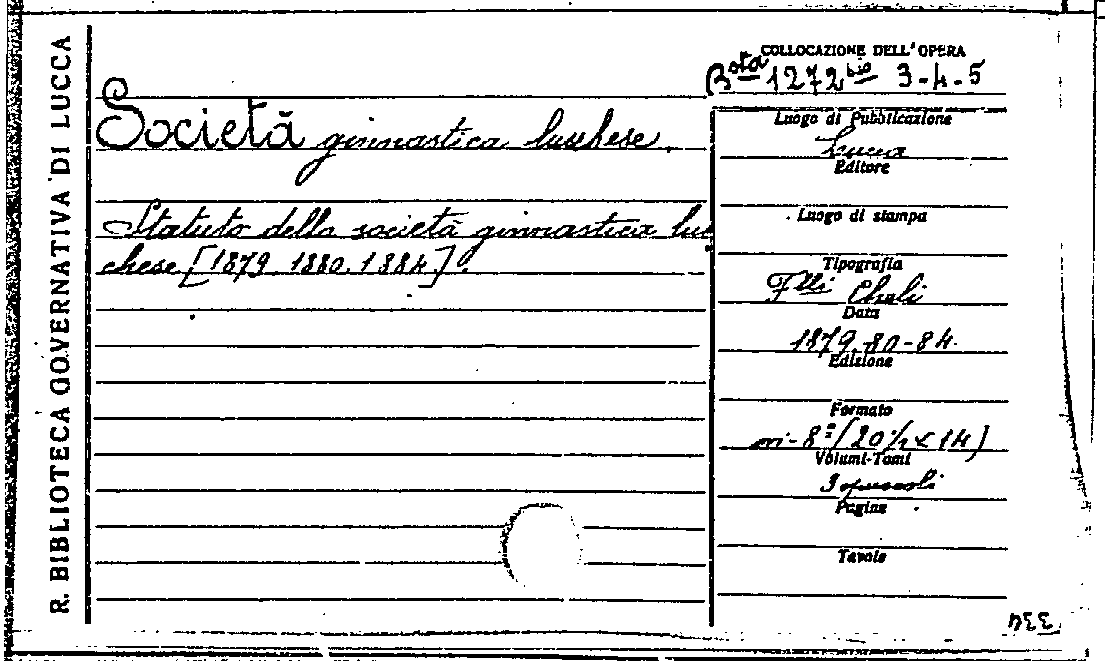 R. BIBLIOTECA GOVERNATIVA DI LUCCA
COLLOCAZIONE DELL'OPERA
Bsta 1272 bis 3-4-5
Società ginnastica lucchese.
Statuto della società ginnastica luc
chese [1879. 1880. 1884].
Luogo di Pubblicazione
Lucca
Editore
Luogo di stampa
Tipografia
Flli Cheli
Data
1879-80-84.
Edizione
Formato
in-8º [20½ x 14]
Volumi-Tomi
3 opuscoli
Pagine
Tavole